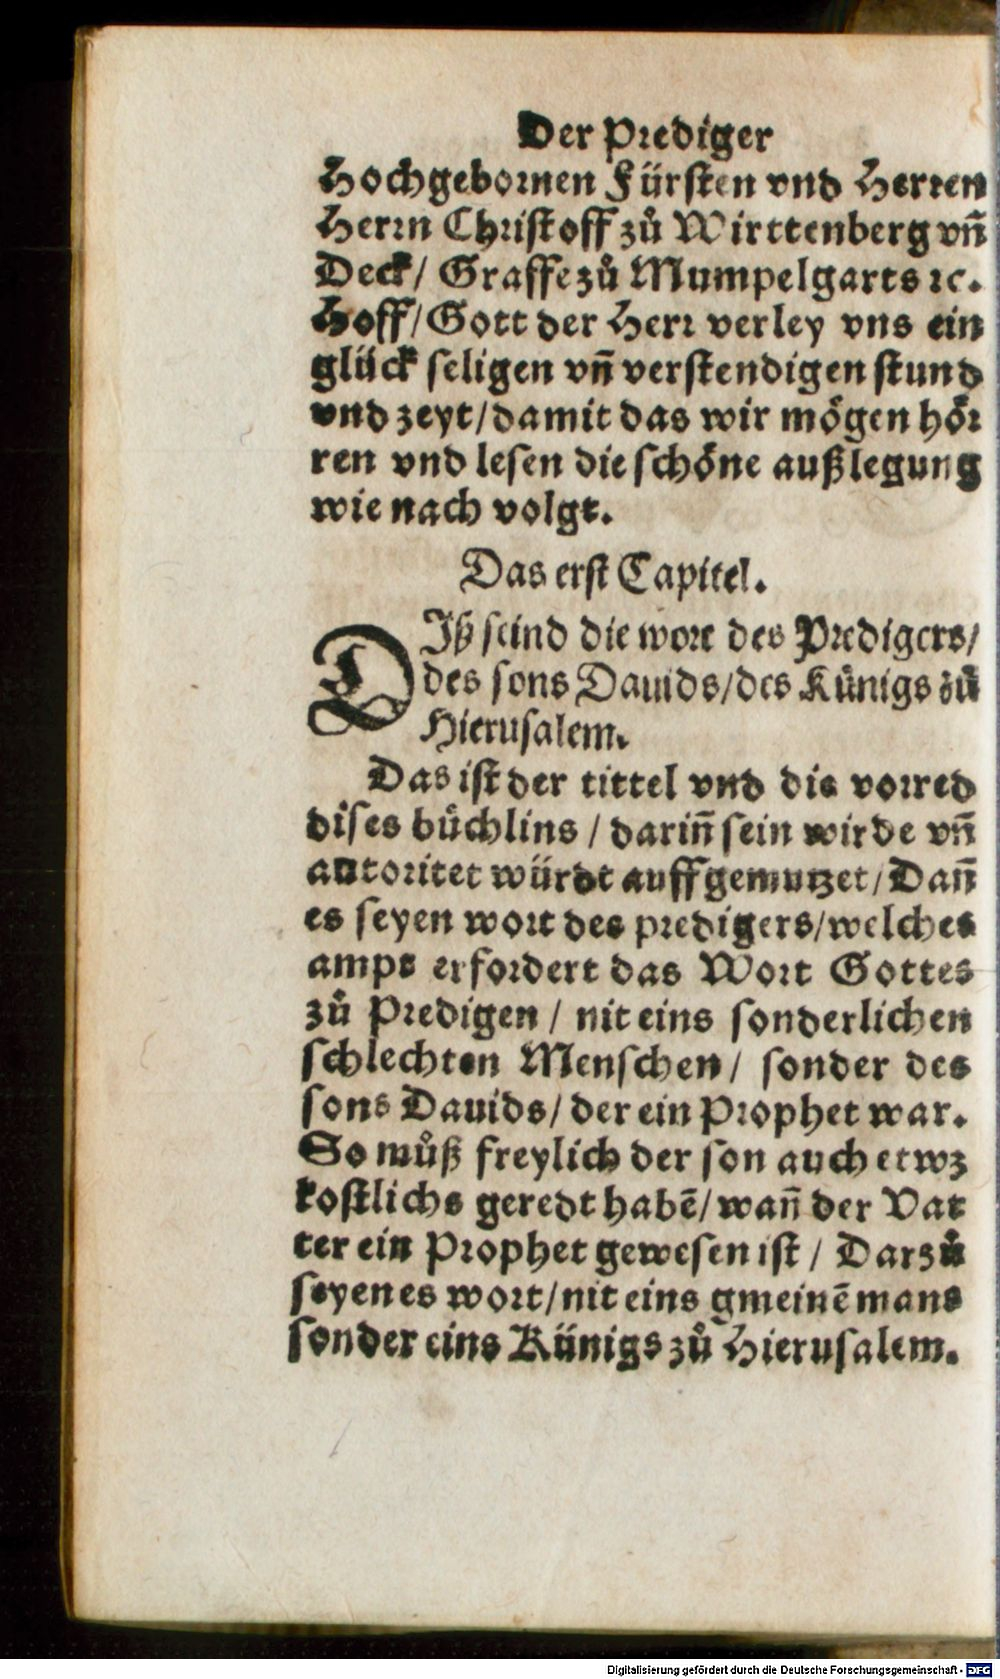 Der Prediger
Hochgebornen Fürsten vnd Herren
Herrn Christoff zů Wirttenberg vñ
Deck/ Graffe zů Mumpelgarts ꝛc.
Hoff/ Gott der Herr verley vns ein
glück seligen vñ verstendigen stund
vnd zeyt/ damit das wir mögen hör
ren vnd lesen die schöne außlegung
wie nach volgt.
Das erst Capitel.
DIß seind die wort des Predigers/
des sons Dauids/ des Künigs zů
Hierusalem.
Das ist der tittel vnd die vorred
dises büchlins / dariñ sein wirde vñ
autoritet würdt auffgemutzet/ Dañ
es seyen wort des predigers/ welches
ampt erfordert das Wort Gottes
zů Predigen / nit eins sonderlichen
schlechten Menschen/ sonder des
sons Dauids/ der ein Prophet war.
So můß freylich der son auch etwz
kostlichs geredt habē/ wañ der Vat
ter ein Prophet gewesen ist / Darzů
seyen es wort/ nit eins gmeinē mans
sonder eins Künigs zů Hierusalem.
Digitalisierung gefördert durch die Deutsche Forschungsgemeinschaft - DFG